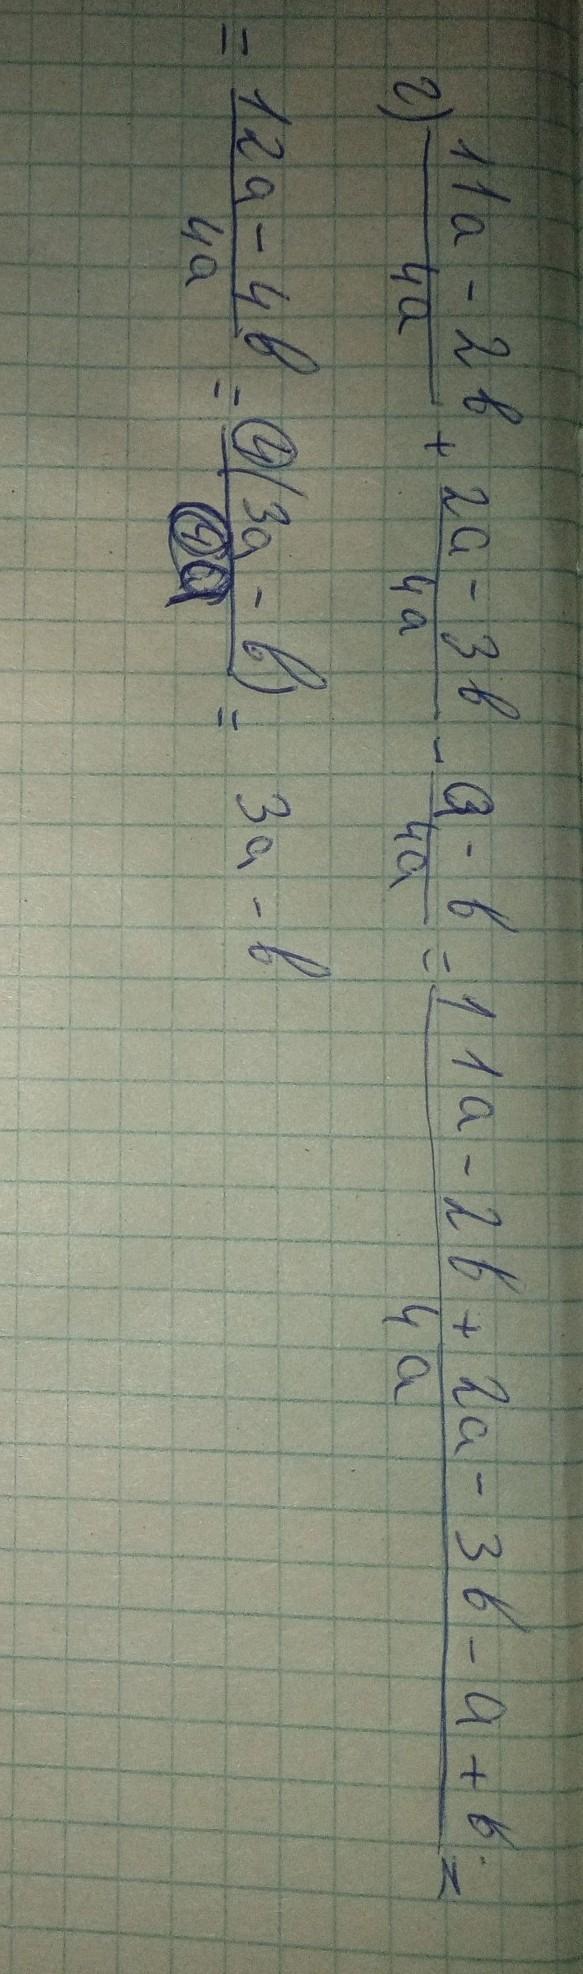 г) (11a - 2b)/4a + (2a - 3b)/4a - (a - b)/4a = (11a - 2b + 2a - 3b - a + b)/4a =
= (12a - 4b)/4a = 4(3a - b)/4a = 3a - b